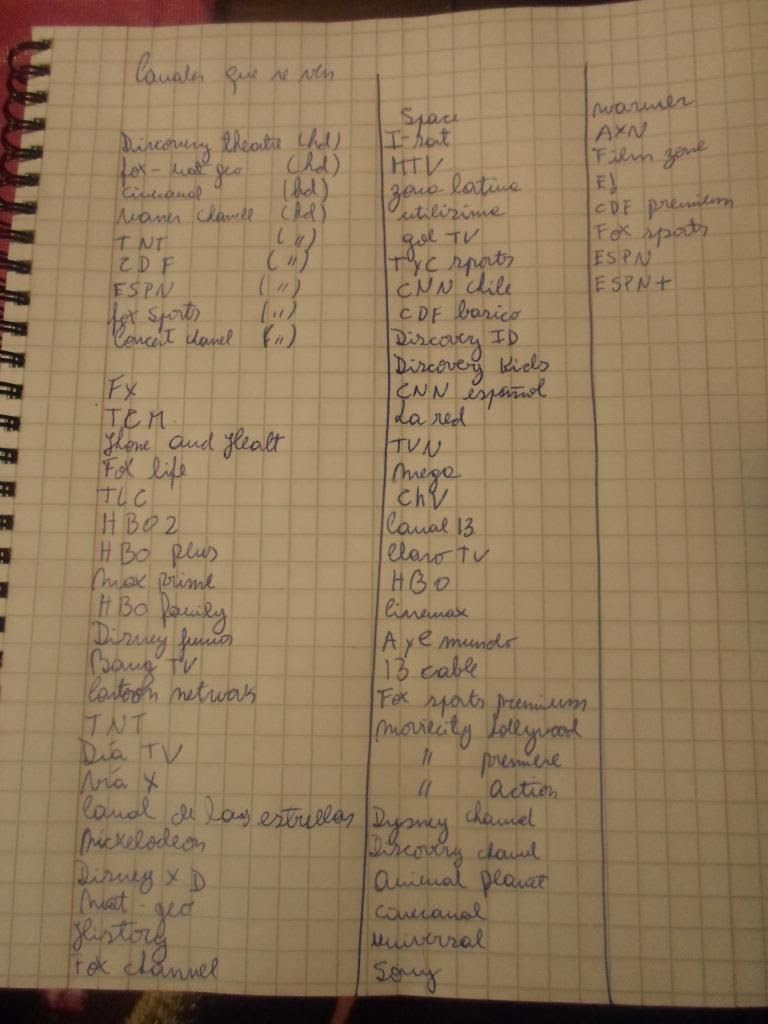 Canales que se ven
Discovery theatre (hd)
fox-nat geo (hd)
Cinecanal (hd)
Waner channel (hd)
TNT (")
CDF (")
ESPN (")
fox sports (")
Concert chanel (")
FX
TCM
Home and Healt
Fox life
TLC
HBO 2
HBO plus
max prime
HBO family
Disney junior
Bang TV
Cartoon network
TNT
Día TV
Vía X
Canal de las estrellas
Nickelodeon
Disney X D
Nat-geo
History
Fox channel
Space
I-sat
MTV
zona latina
utilisima
gol TV
TyC sports
CNN chile
CDF basico
Discovery ID
Discovery Kids
CNN español
La red
TVN
Mega
ChV
Canal 13
Claro TV
HBO
Cinemax
A y E mundo
13 cable
Fox sports premium
Moviecity Hollywood
" premiere
" Action
Dysney channel
Discovery channel
Animal planet
Cinecanal
Universal
Sony
Warner
AXN
Film zone
E!
CDF premium
Fox sports
ESPN
ESPN+